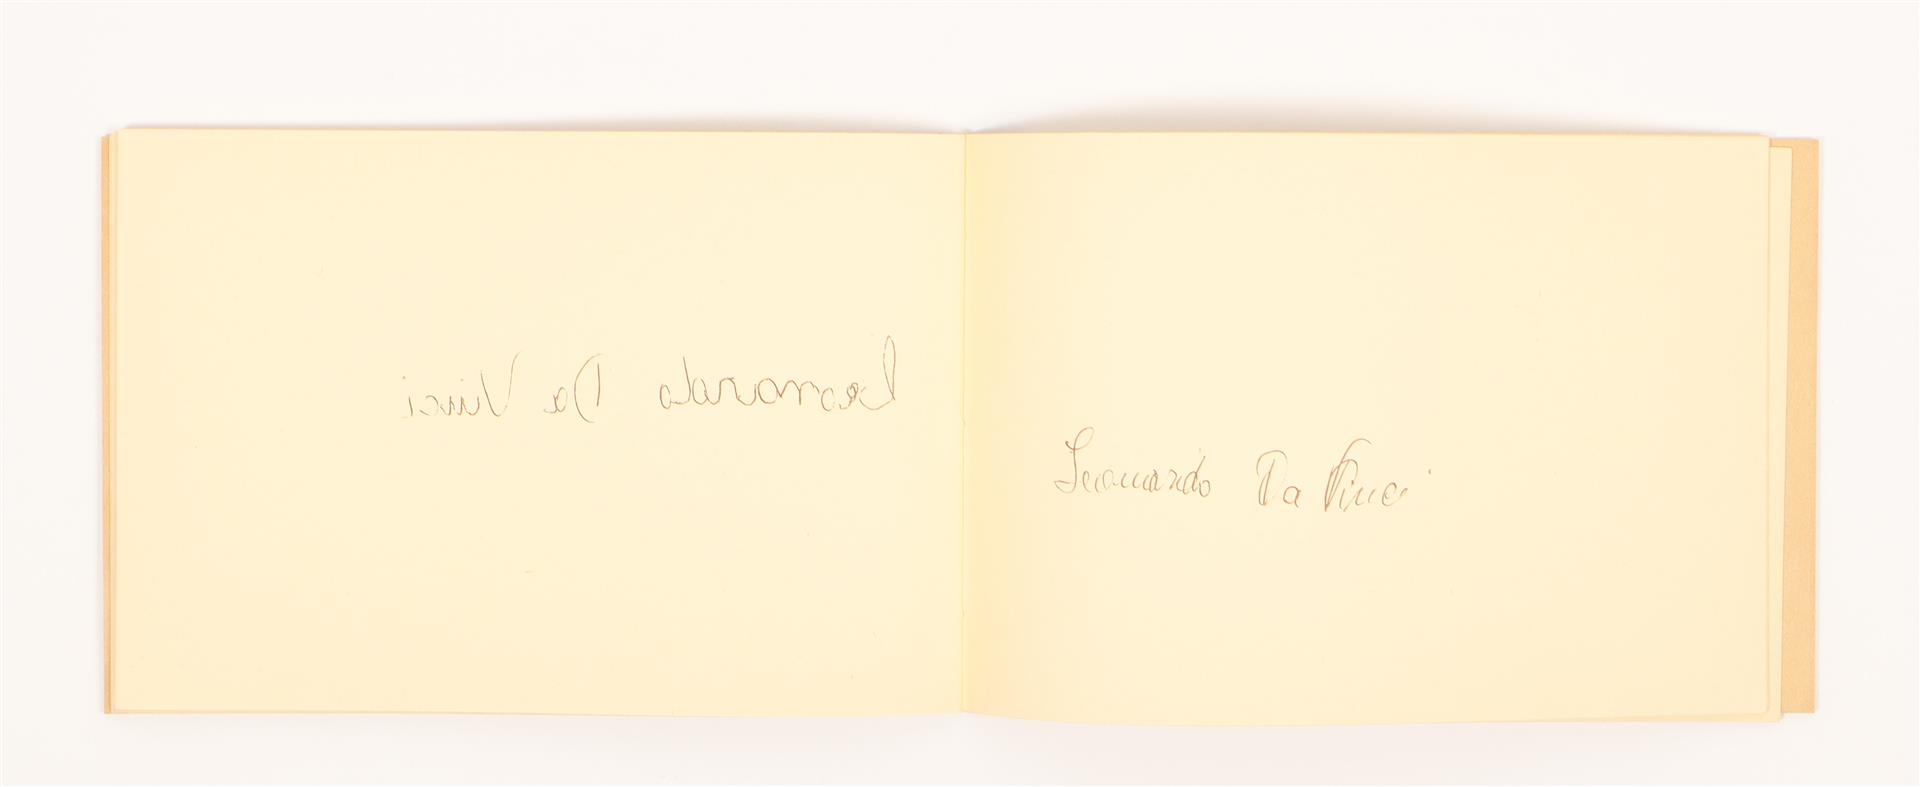 Leonardo Da Vinci
Leonardo Da Vinci